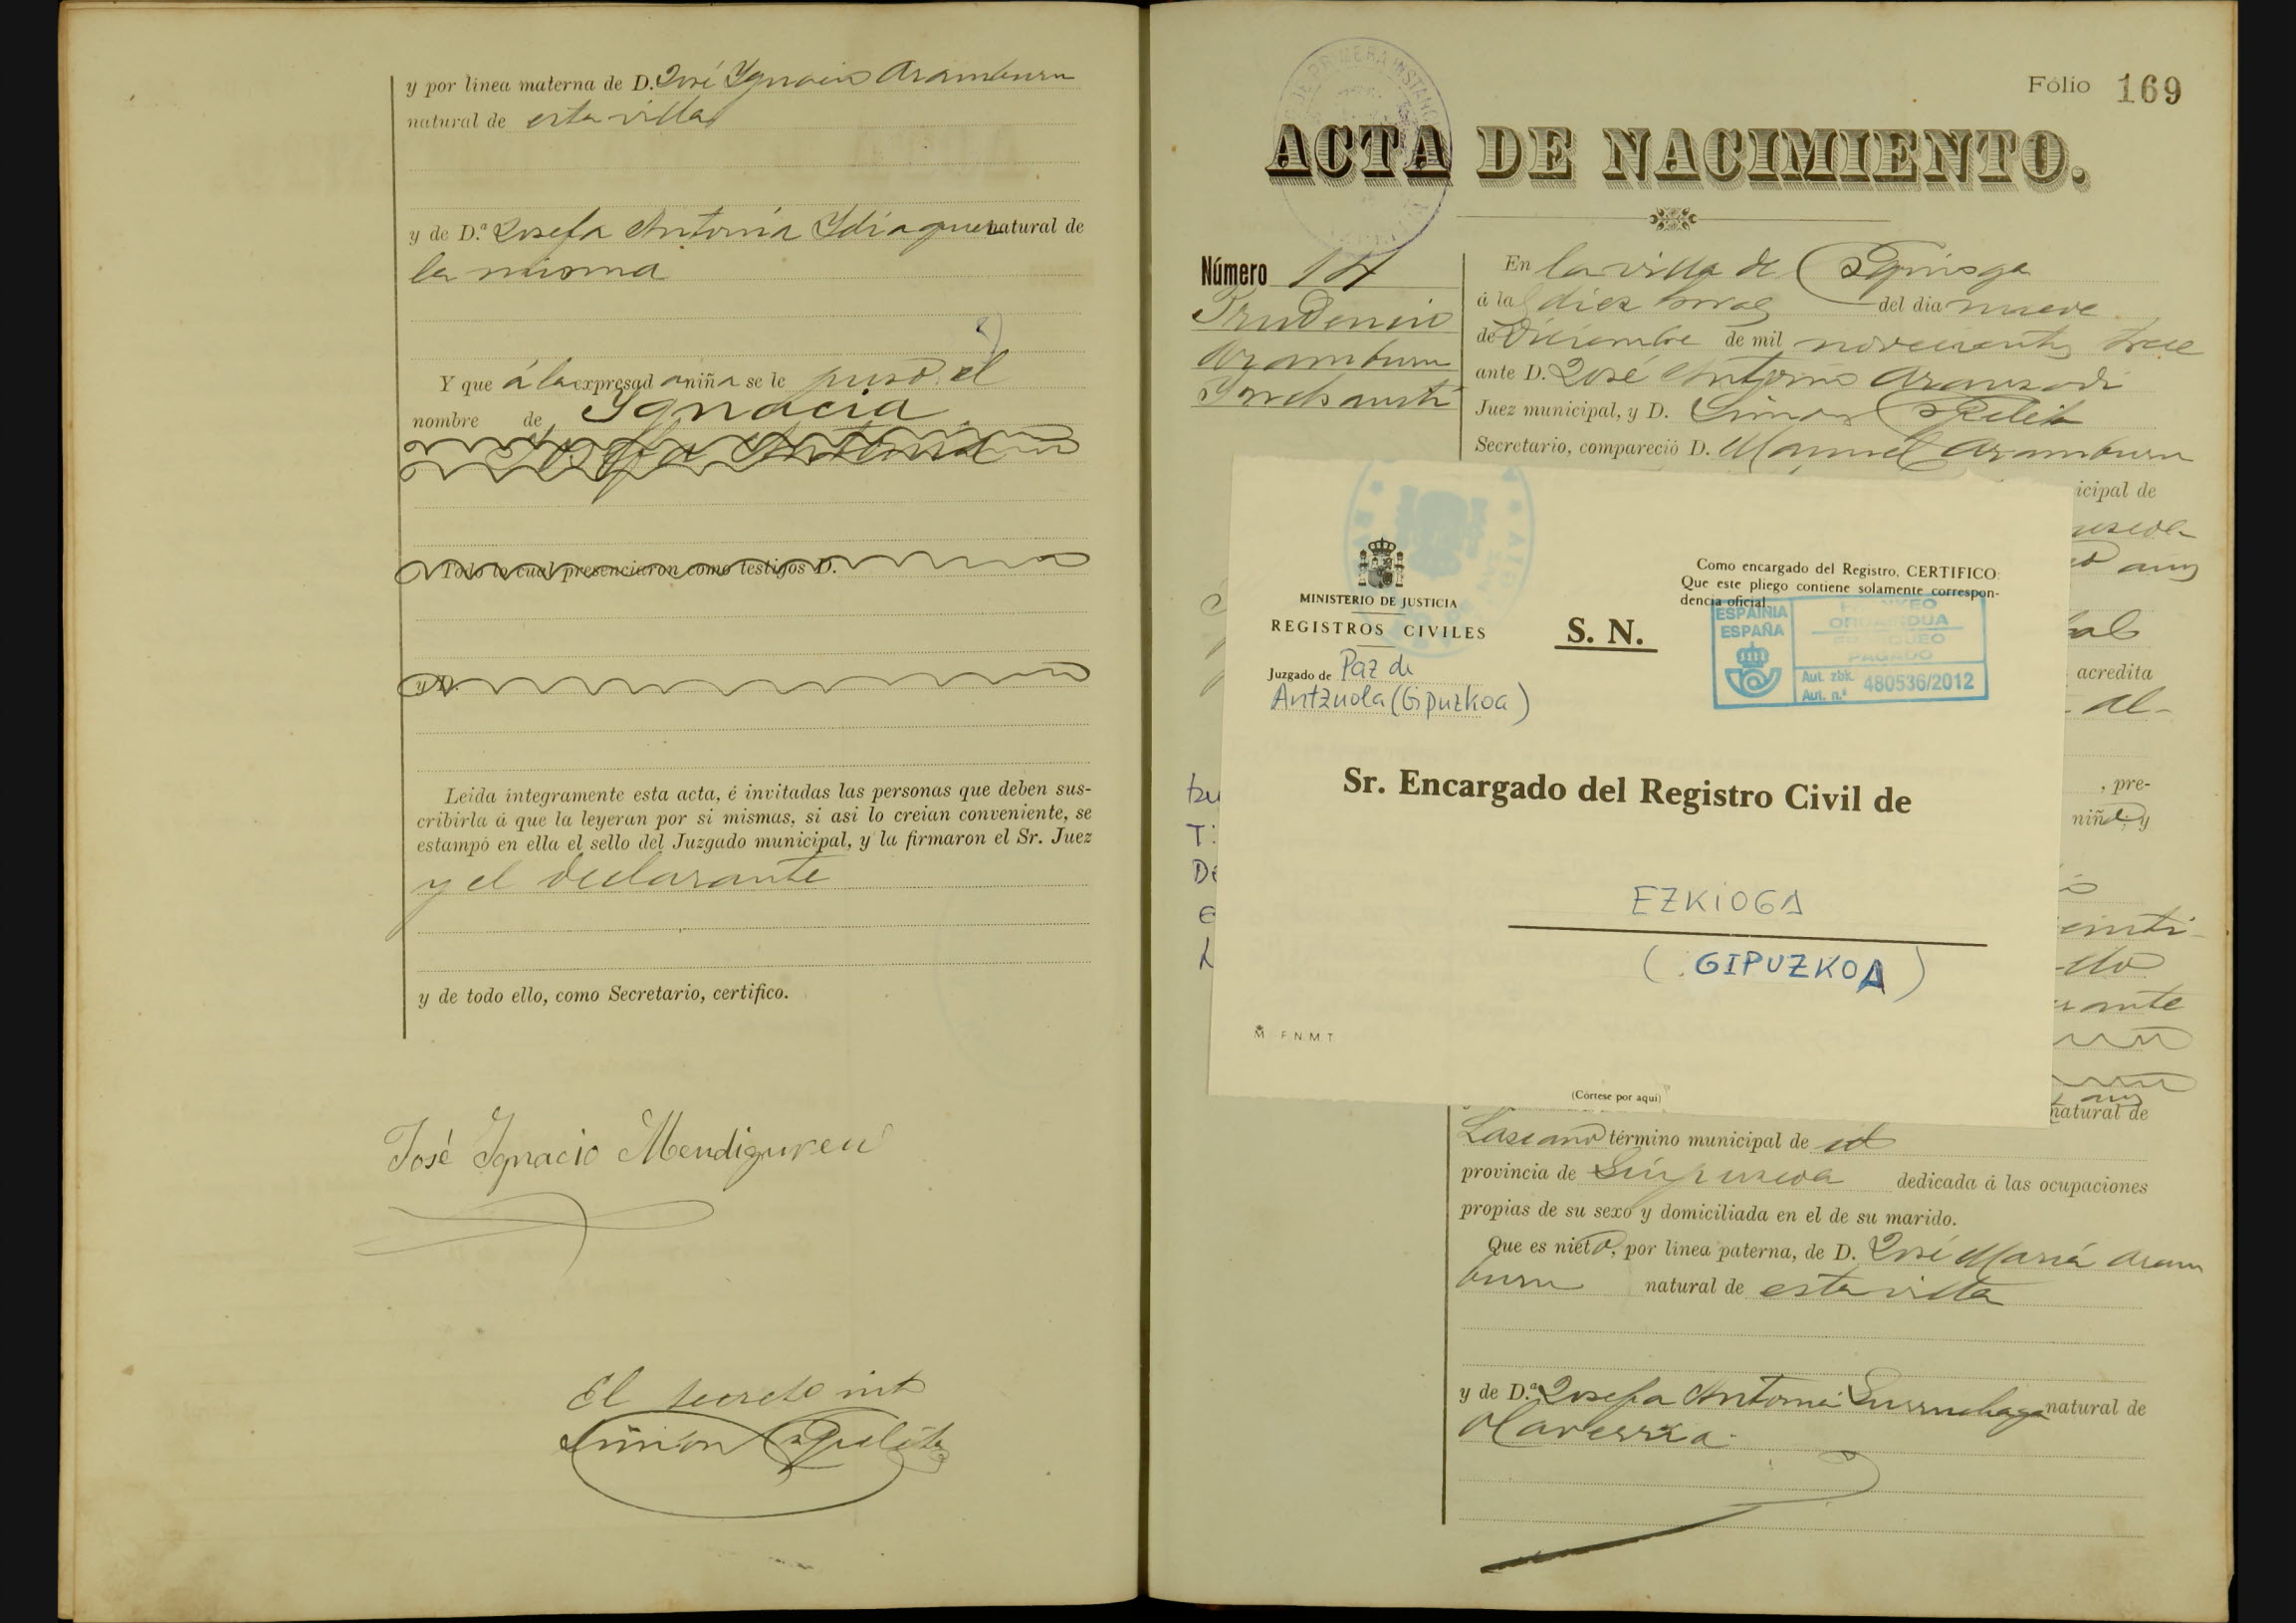 y por línea materna de D. José Ygnacio Aramburu
natural de esta villa
y de D.ª Josefa Antonia Ydiaquez natural de
la misma
Y que á la expresad a niña se le puso el
nombre de Ygnacia
Josefa Antonia
Todo lo cual presenciaron como testigos D.
y D.
Leída íntegramente esta acta, é invitadas las personas que deben sus-
cribirla á que la leyeran por sí mismas, si así lo creían conveniente, se
estampó en ella el sello del Juzgado municipal, y la firmaron el Sr. Juez
y el declarante
y de todo ello, como Secretario, certifico.
José Ygnacio Mendiguren
El secreto int
Simón
Fólio 169
ACTA DE NACIMIENTO.
Número 14
Prudencio
Aramburu
En la villa de Ezquioga
á la diez horas del día nueve
de Diciembre de mil novecientos trece
ante D. José Antonio Aranzadi
Juez municipal, y D. Simon
Secretario, compareció D. Manuel Aramburu
icipal de
acredita
al-
, pre-
niño, y
einti-
rante
natural de
MINISTERIO DE JUSTICIA
REGISTROS CIVILES
Juzgado de Paz de
Antzuola (Gipuzkoa)
S. N.
Como encargado del Registro, CERTIFICO:
Que este pliego contiene solamente correspon-
dencia oficial
ESPAINIA
ESPAÑA
ORDAINDUA
PAGADO
Aut. zbk.
Aut. n.º
480536/2012
Sr. Encargado del Registro Civil de
EZKIOGA
(GIPUZKOA)
M F N M T
(Córtese por aquí)
Lascano término municipal de id
provincia de Guipuzcoa dedicada á las ocupaciones
propias de su sexo y domiciliada en el de su marido.
Que es nieto, por línea paterna, de D. José María Aram
buru natural de esta villa
y de D.ª Josefa Antonia natural de
Olaverria